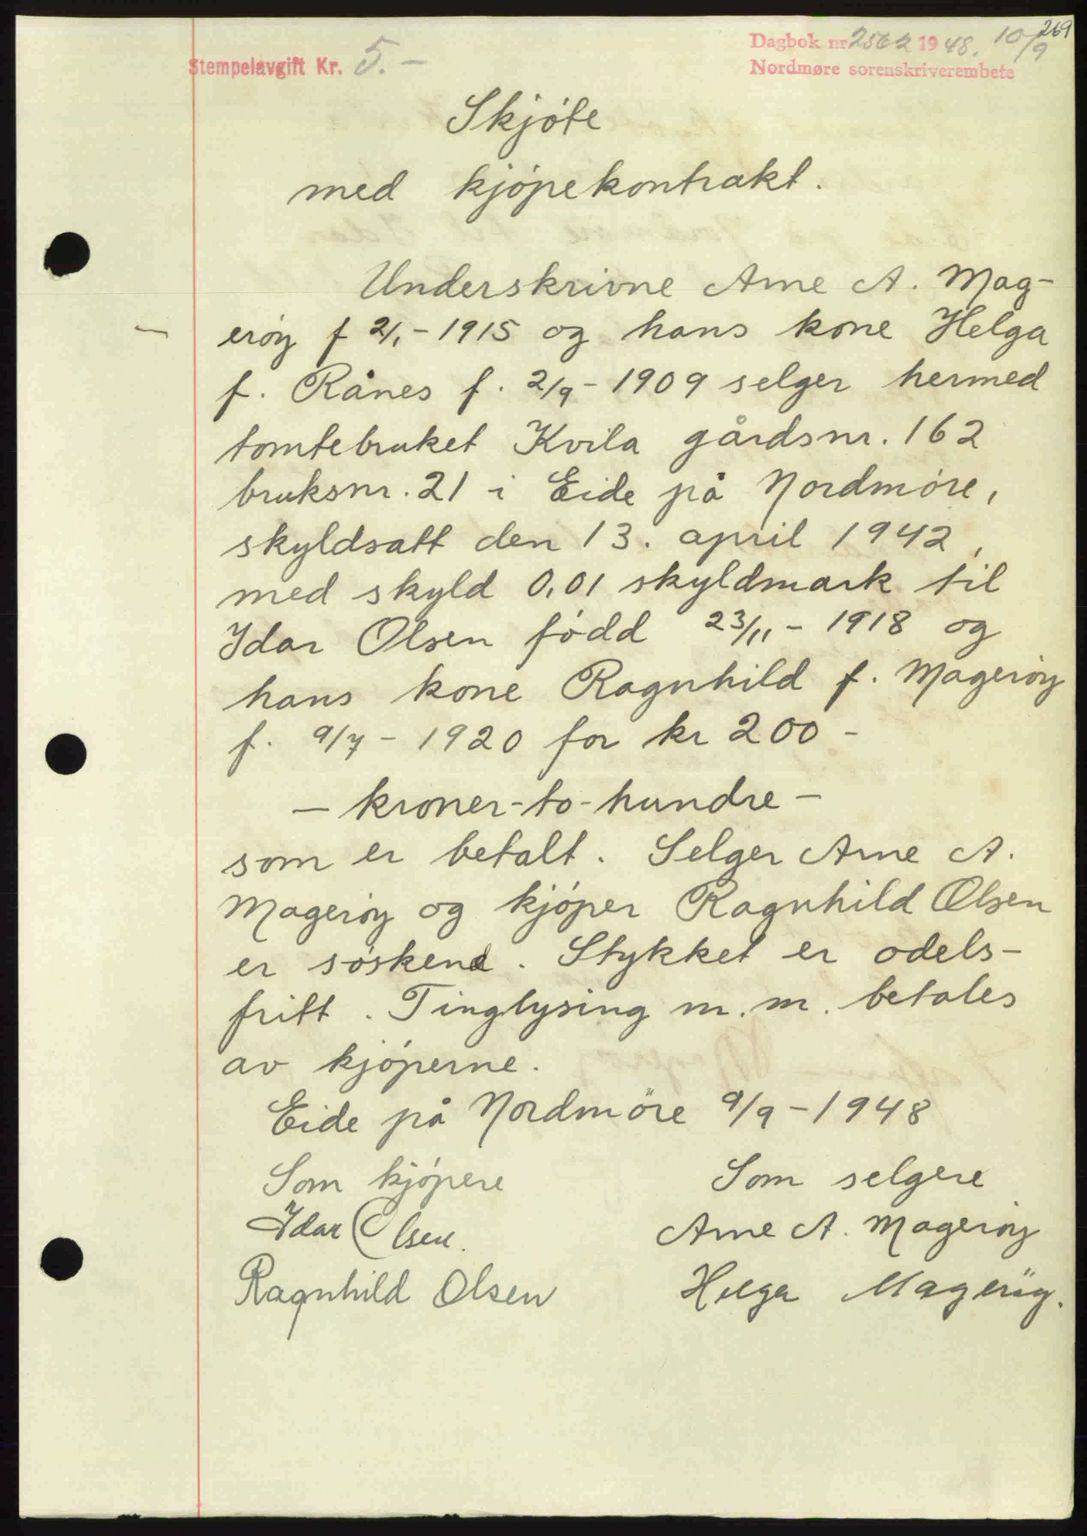 269
Dagbok nr 2562 1948. 10/9
Stempelavgift Kr. 5.-
Nordmøre sorenskriverembete
Skjøte
med kjøpekontrakt.
Underskrivne Arne A. Mag-
erøy f 2/1 - 1915 og hans kone Helga
f. Rånes f. 2/9 - 1909 selger hermed
tomtebruket Kvila gårdsnr. 162
bruksnr. 21 i Eide på Nordmøre,
skyldsatt den 13. april 1942,
med skyld 0,01 skyldmark til
Idar Olsen född 23/11 - 1918 og
hans kone Ragnhild f. Magerøy
f. 9/7 - 1920 for kr 200 -
- kroner-to-hundre -
som er betalt. Selger Arne A.
Magerøy og kjøper Ragnhild Olsen
er søskend. Stykket er odels-
fritt. Tinglysing m.m. betales
av kjøperne.
Eide på Nordmöre 9/9 - 1948
Som kjøpere Som selgere
Idar Olsen. Arne A. Magerøy
Ragnhild Olsen Helga Magerøy.